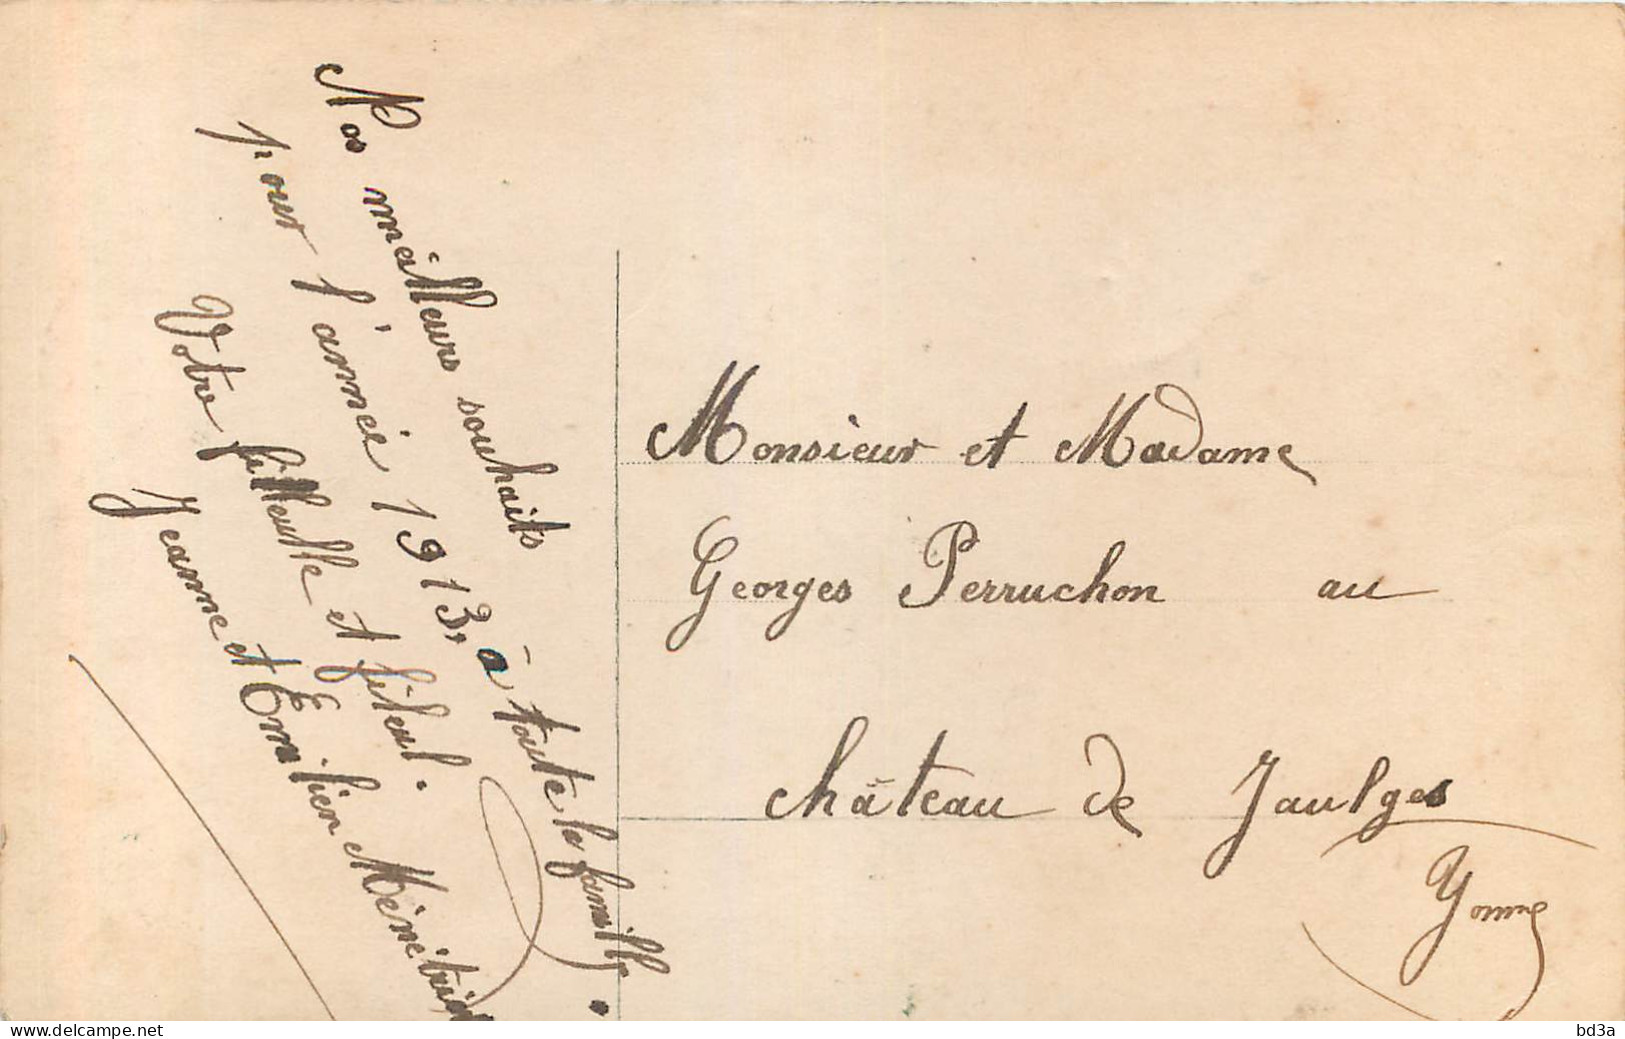 Nos meilleurs souhaits
pour l'année 1913, à toute la famille.
Votre filleulle et fileul.
Jeanne et Emilien
Monsieur et Madame
Georges Perruchon au
château de Jaulges
Yonne
www.delcampe.net
bd3a